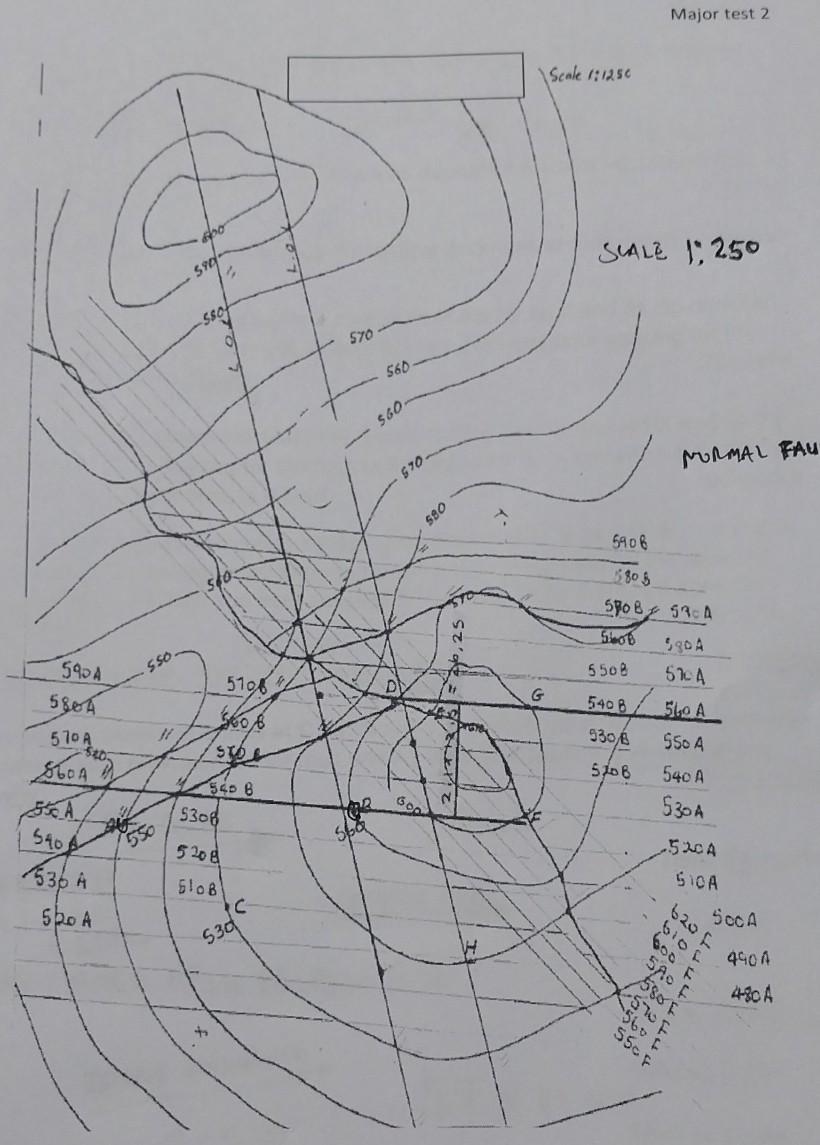 Major test 2
Scale 1:1250
SCALE 1:250
NORMAL FAU
600
590
L.O.F
580
L.O.F
570
560
560
570
580
590B
580B
570B 590A
560B 580A
550B 570A
540B 560A
530B 550A
520B 540A
530A
520A
510A
500A
490A
480A
560
550
570
590A
580A
570A
560A
550A
540A
530A
520A
570B
560B
540B
530B
520B
510B
D
E
G
F
B
560
600
550
C
530
H
620 F
610 F
600 F
590 F
580 F
570 F
560 F
550 F